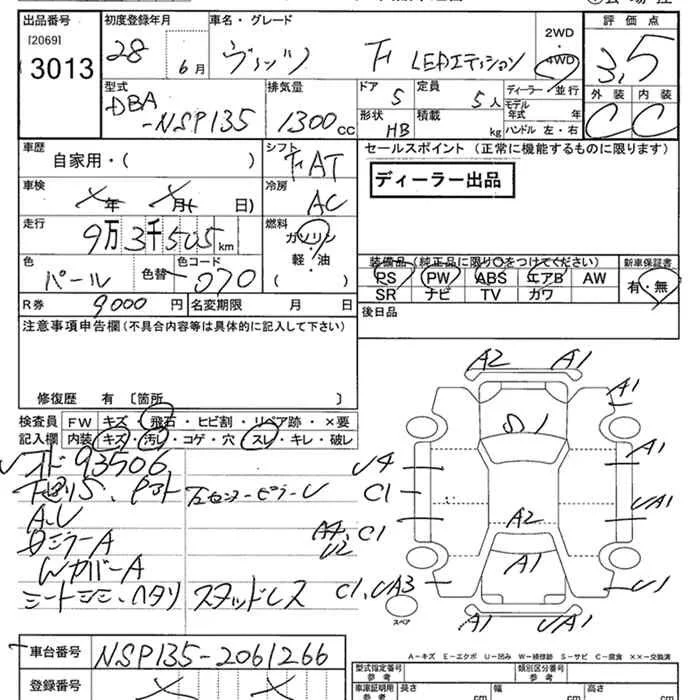 出品番号 初度登録年月 車名・グレード 2WD 評価点
[2069] 28 6 月 ヴィッツ F LEDエディション 4WD 3.5
3013
型式 排気量 ドア 定員 ディーラー・並行 外装 内装
DBA 5 5人 モデル
-NSP135 1300cc 形状 積載 年式 年 C C
HB kg ハンドル 左・右
車歴 シフト セールスポイント (正常に機能するものに限ります)
自家用・( ) FAT
ディーラー出品
車検 冷房
年 月( 日) AC
走行 燃料
9万3千505km ガソリン
軽・油
色 色替 色コード ( )
パール 070
装備品(純正品に限り○をつけてください) 新車保証書
PS PW ABS エアB AW 有・無
SR ナビ TV カワ
R券 9000 円 名変期限 月 日 後日品
注意事項申告欄(不具合内容等は具体的に記入して下さい)
修復歴 有 〔箇所 〕
検査員 FW キズ・飛石・ヒビ割・リペア跡・×要
記入欄 内装 キズ・汚レ・コゲ・穴・スレ・キレ・破レ
93506
ミラーA
WカバーA
シートシミ・ヘタリ スタッドレス
A2 A1
A1
U4 A1
C1 UA1
C1
U2
A2
A1
C1,UA3 U1
スペア
UA1 A1
A-キズ E-エクボ U-凹み W-補修跡 S-サビ C-腐食 ××-交換済
車台番号 NSP135-2061266
登録番号
型式指定番号 類別区分番号
参考 参考
車庫証明用 長さ 幅 高さ
参考 cm cm cm